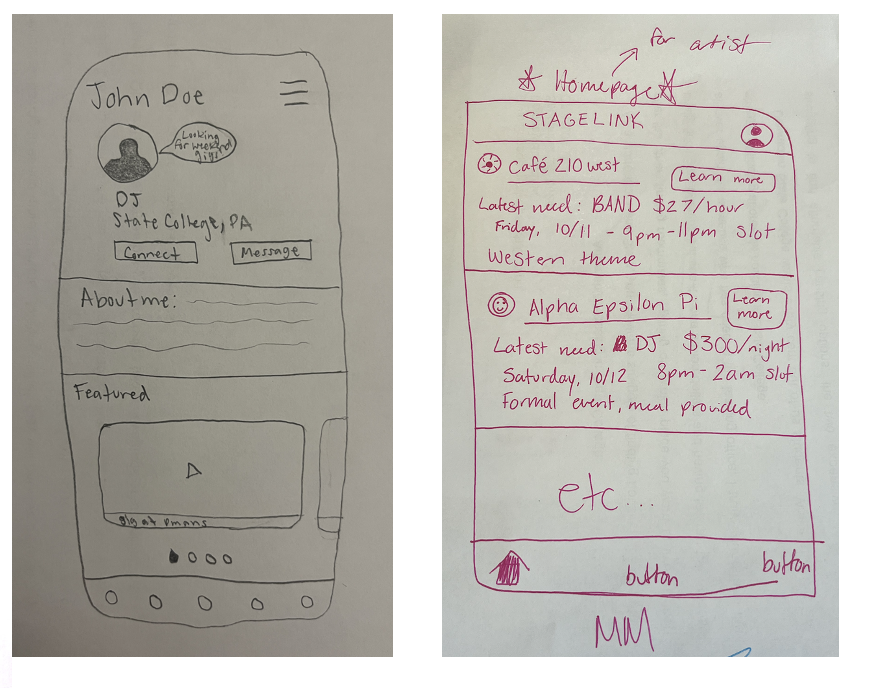 John Doe
Looking
for weekend
gigs
DJ
State College, PA
Connect
Message
About me:
Featured
gig at pmans
for artist
Homepage
STAGELINK
Café 210 west
Learn more
Latest need: BAND $27/hour
Friday, 10/11 - 9pm-11pm slot
Western theme
Alpha Epsilon Pi
Learn
more
Latest need: DJ $300/night
Saturday, 10/12 8pm-2am slot
Formal event, meal provided
etc...
button
button
MM